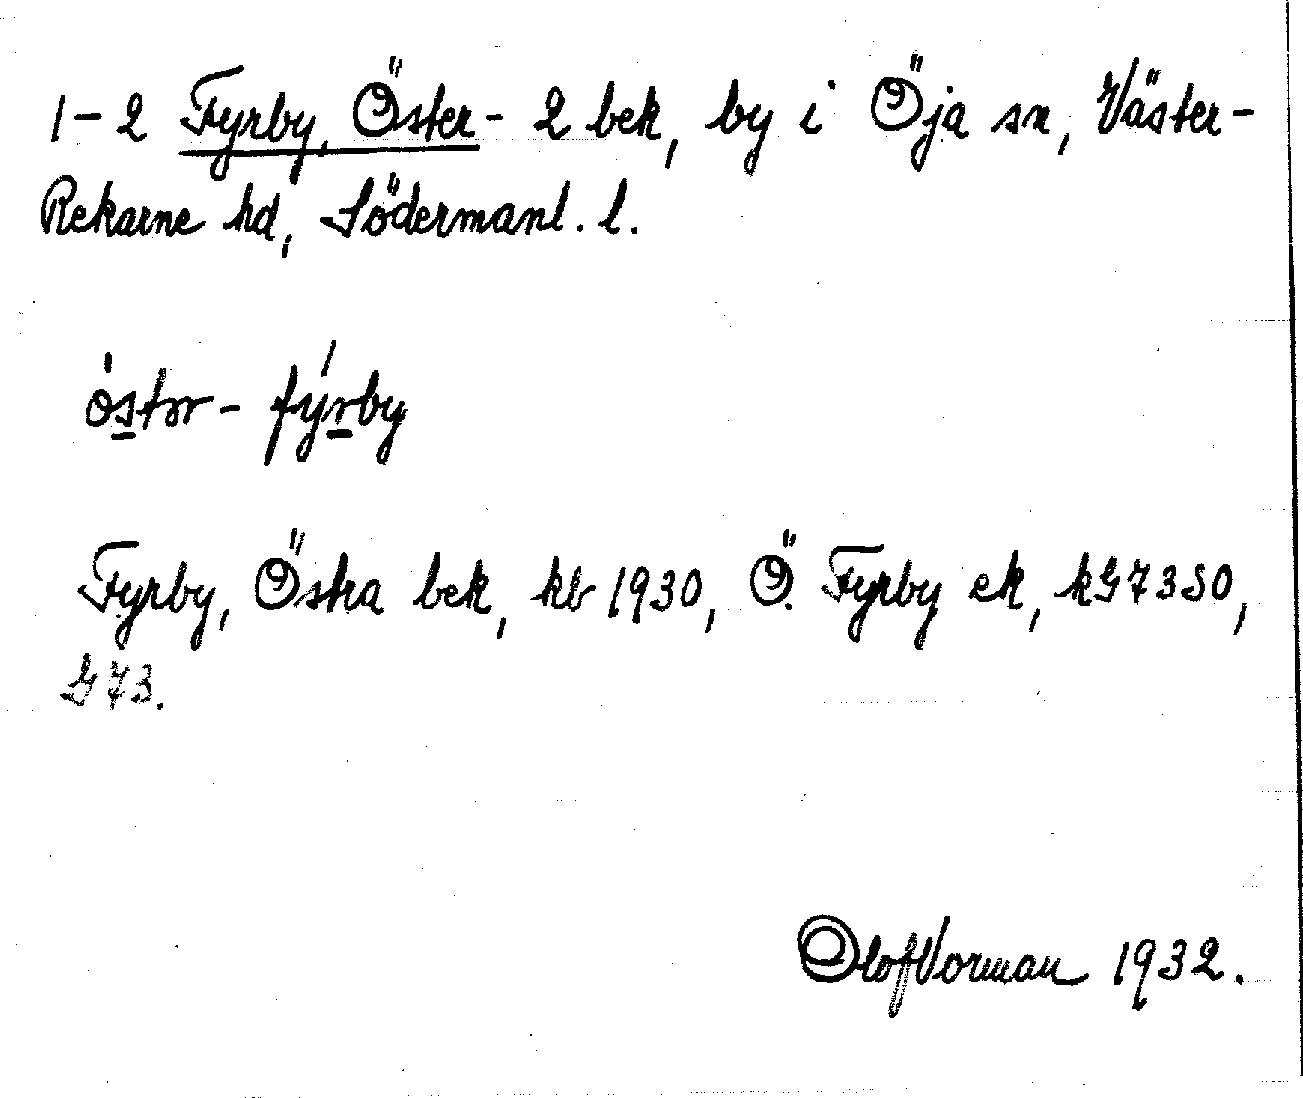 1-2 Fyrby, Öster- 2 bek, by i Öja sn, Väster-
Rekarne hd, Södermanl. l.
östrr - fýrby
Fyrby, Östra bek, kb 1930, Ö. Fyrby ek, kG7350,
G73.
Olof Vorman 1932.